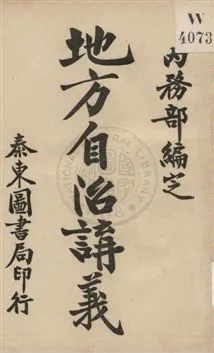 W
4073
內務部編定
地方自治講義
泰東圖書局印行